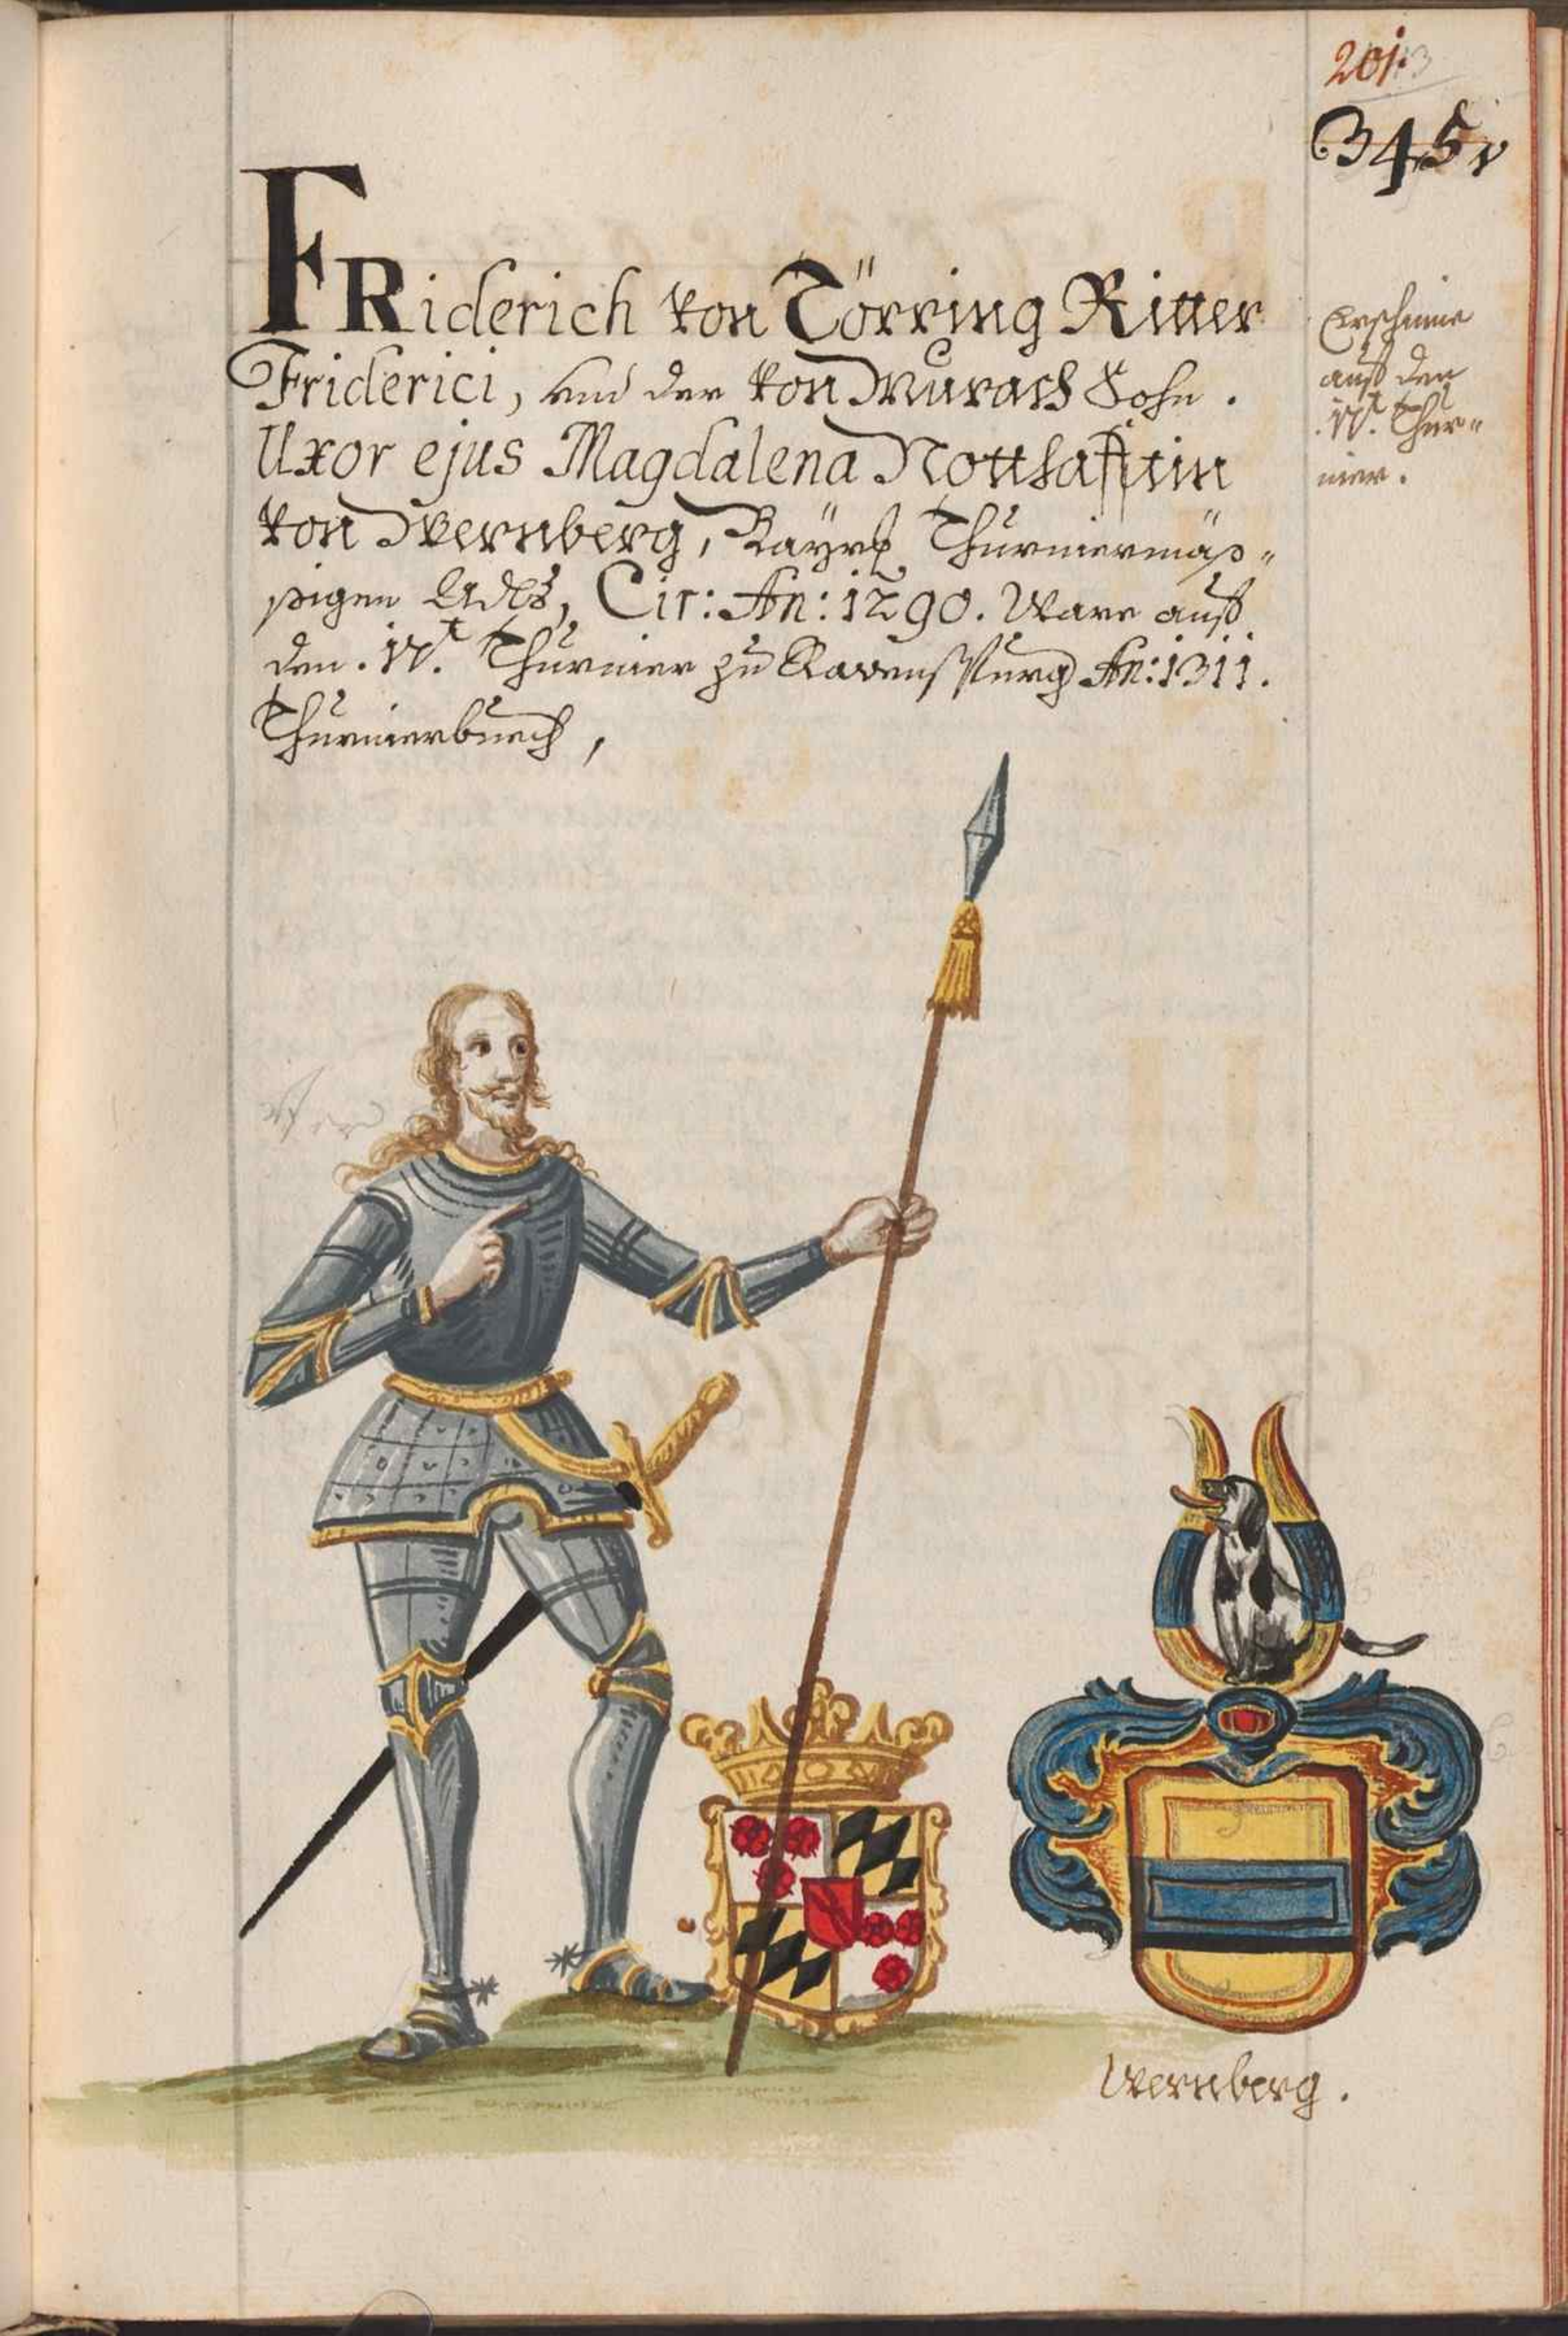 201
345
FRiderich von Törring Ritter
Friderici, und der von Murach Sohn.
Uxor ejus Magdalena Notthafftin
von Wernberg, Bayr: Thurniermäs=
sigen Adls, Cir: An: 1290. Ware auff
den .14t. Thurnier zu Ravenspurg An: 1311.
Thurnierbuech,
Erschine
auff den
.14t. Thur=
nier.
Wernberg.